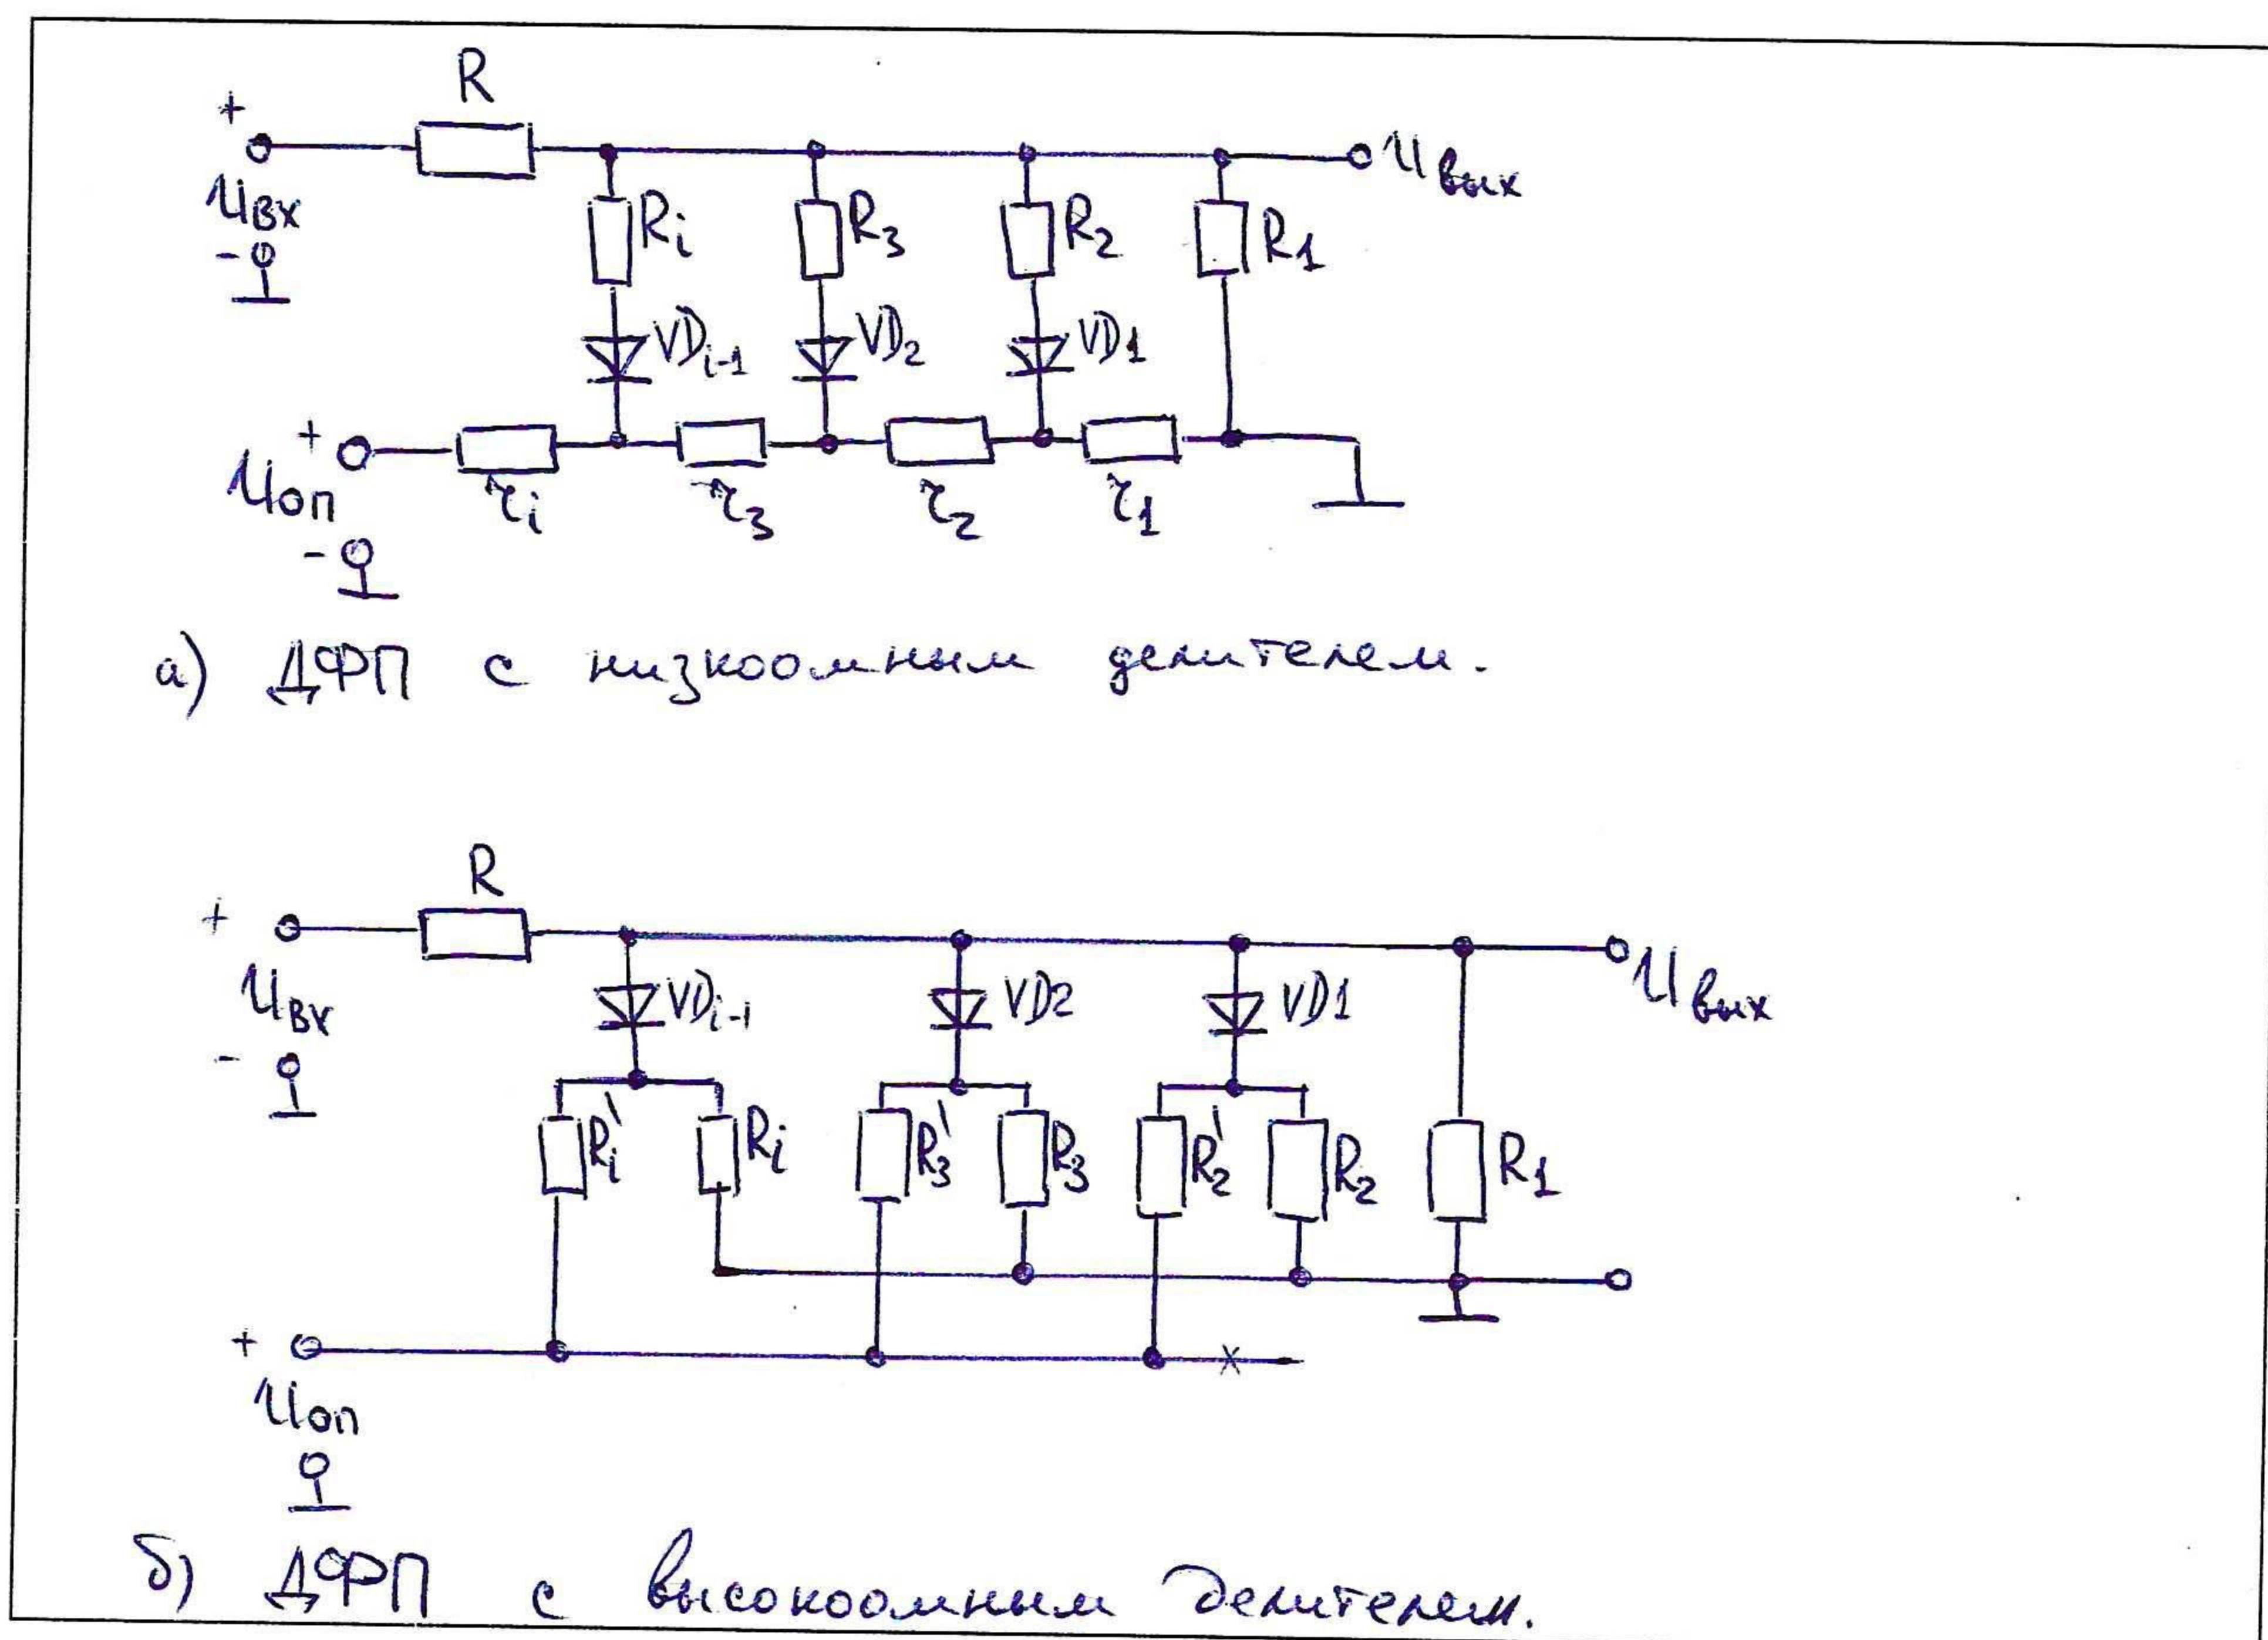 R
+
Uвх
-
Ri R3 R2 R1
Uвых
VDi-1 VD2 VD1
+
Uоп
-
ri r3 r2 r1
а) ДФП с низкоомным делителем.
R
+
Uвх
-
Uвых
VDi-1 VD2 VD1
Ri' Ri R3' R3 R2' R2 R1
+ x
Uоп
б) ДФП с высокоомным делителем.